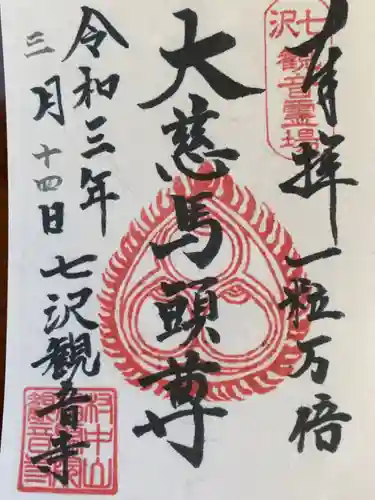 奉拝 一粒万倍
七沢
観音霊場
大慈馬頭尊
令和三年
三月十四日 七沢観音寺